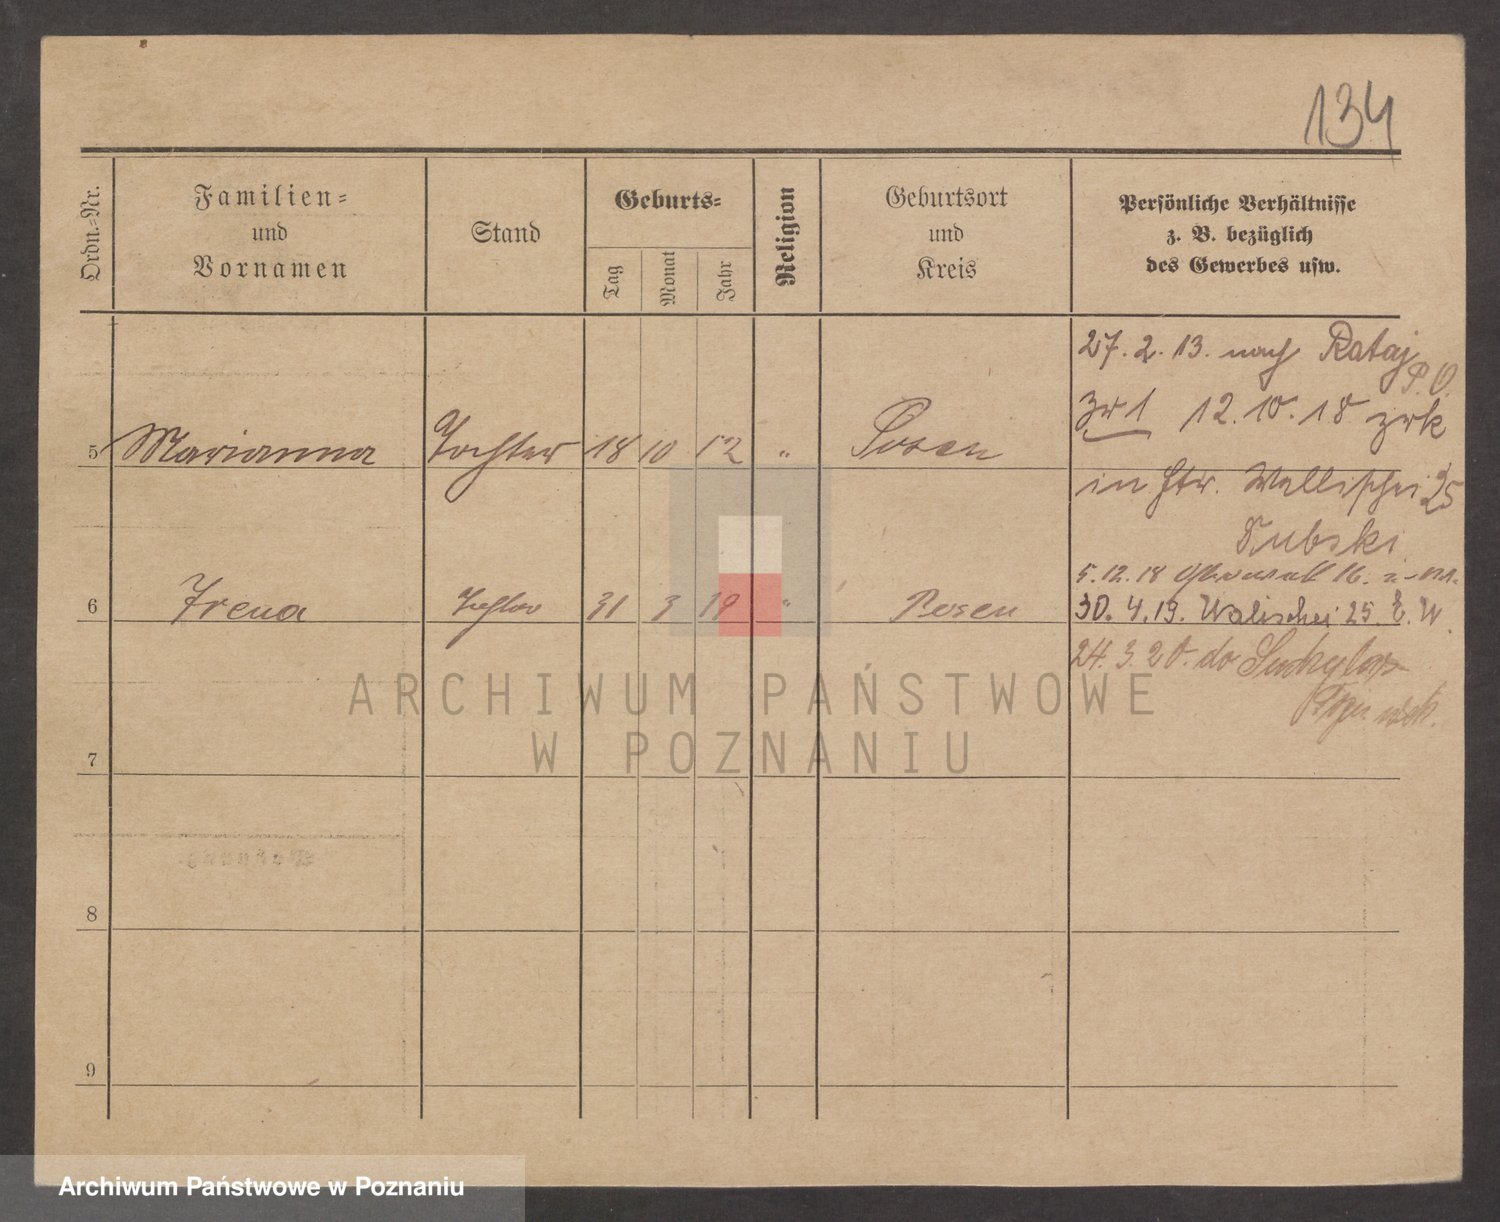 134
Ordn.-Nr.
Familien-
und
Vornamen
Stand
Geburts-
Tag
Monat
Jahr
Religion
Geburtsort
und
Kreis
Persönliche Verhältnisse
z. B. bezüglich
des Gewerbes usw.
27. 2. 13. nach Rataj
P. O.
12. 10. 18 zrk
5 Marianna Tochter 18 10 12 " Posen
in Str. Wallischei 25
Dubski
5. 12. 18 16.
6 Irena Tochter 31 3 19 " Posen
30. 4. 19. Walischei 25. E. W.
24. 3. 20. do
ARCHIWUM PAŃSTWOWE
W POZNANIU
7
8
9
Archiwum Państwowe w Poznaniu